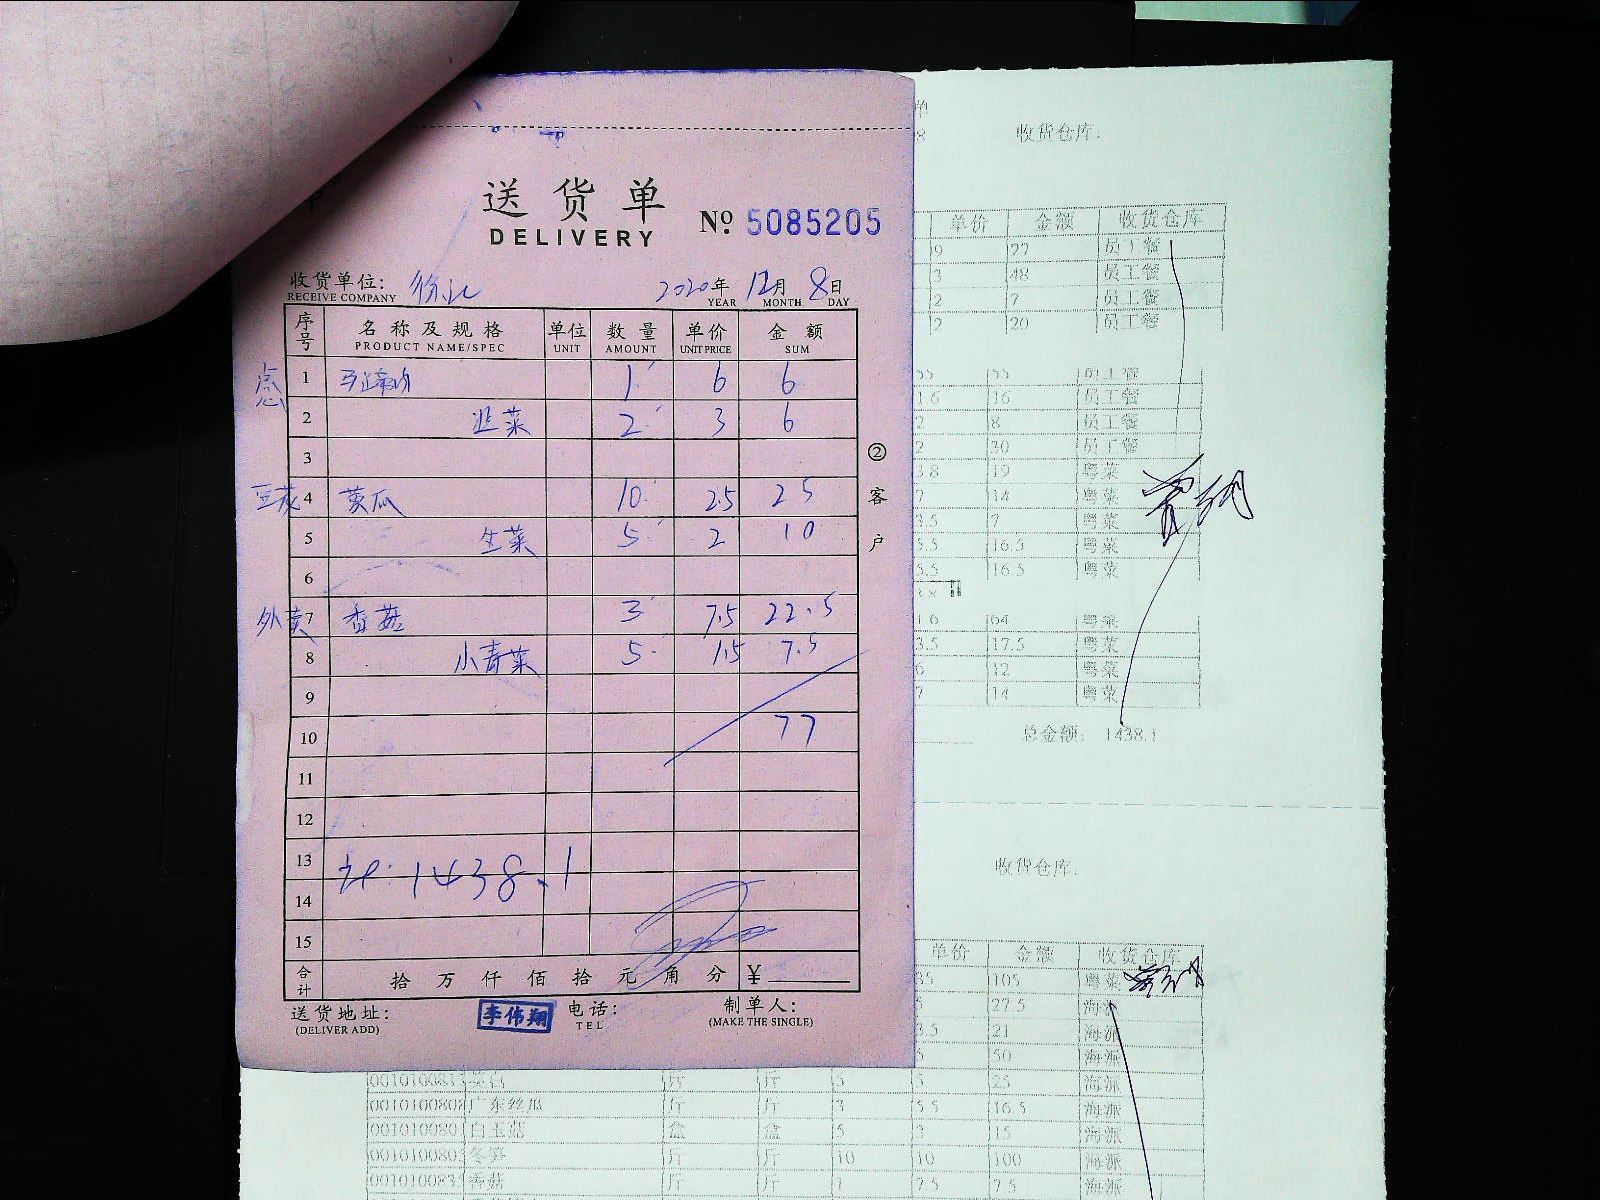 送货单
DELIVERY
№ 5085205
收货单位:
RECEIVE COMPANY
2020年 12月 8日
YEAR MONTH DAY
序号 名称及规格 单位 数量 单价 金额
PRODUCT NAME/SPEC UNIT AMOUNT UNIT PRICE SUM
1 1 6 6
2 韭菜 2 3 6
3
豆花 4 黄瓜 10 2.5 25
5 生菜 5 2 10
6
外卖 7 香菇 3 7.5 22.5
8 小青菜 5 1.5 7.5
9
10 77
11
12
13 1438.1
14
15
合计 拾 万 仟 佰 拾 元 角 分 ¥
②客户
送货地址:
(DELIVER ADD)
李伟翔
电话:
TEL
制单人:
(MAKE THE SINGLE)
单
收货仓库:
单价 金额 收货仓库
9 27 员工餐
3 48 员工餐
2 ? 员工餐
2 20 员工餐
55 员工餐
16 员工餐
2 8 员工餐
2 30 员工餐
3.8 19 粤菜
7 14 粤菜
3.5 7 粤菜
5.5 16.5 粤菜
5.5 16.5 粤菜
16 64 粤菜
3.5 17.5 粤菜
6 12 粤菜
7 14 粤菜
总金额: 1438.1
收货仓库:
单价 金额 收货仓库
35 105 粤菜
27.5 海派
3.5 21 海派
5 50 海派
斤 斤 5 5 25 海派
广东丝瓜 斤 斤 3 5.5 16.5 海派
白玉菇 盒 盒 5 3 15 海派
冬笋 斤 斤 10 10 100 海派
香菇 斤 斤 1 7.5 7.5 海派